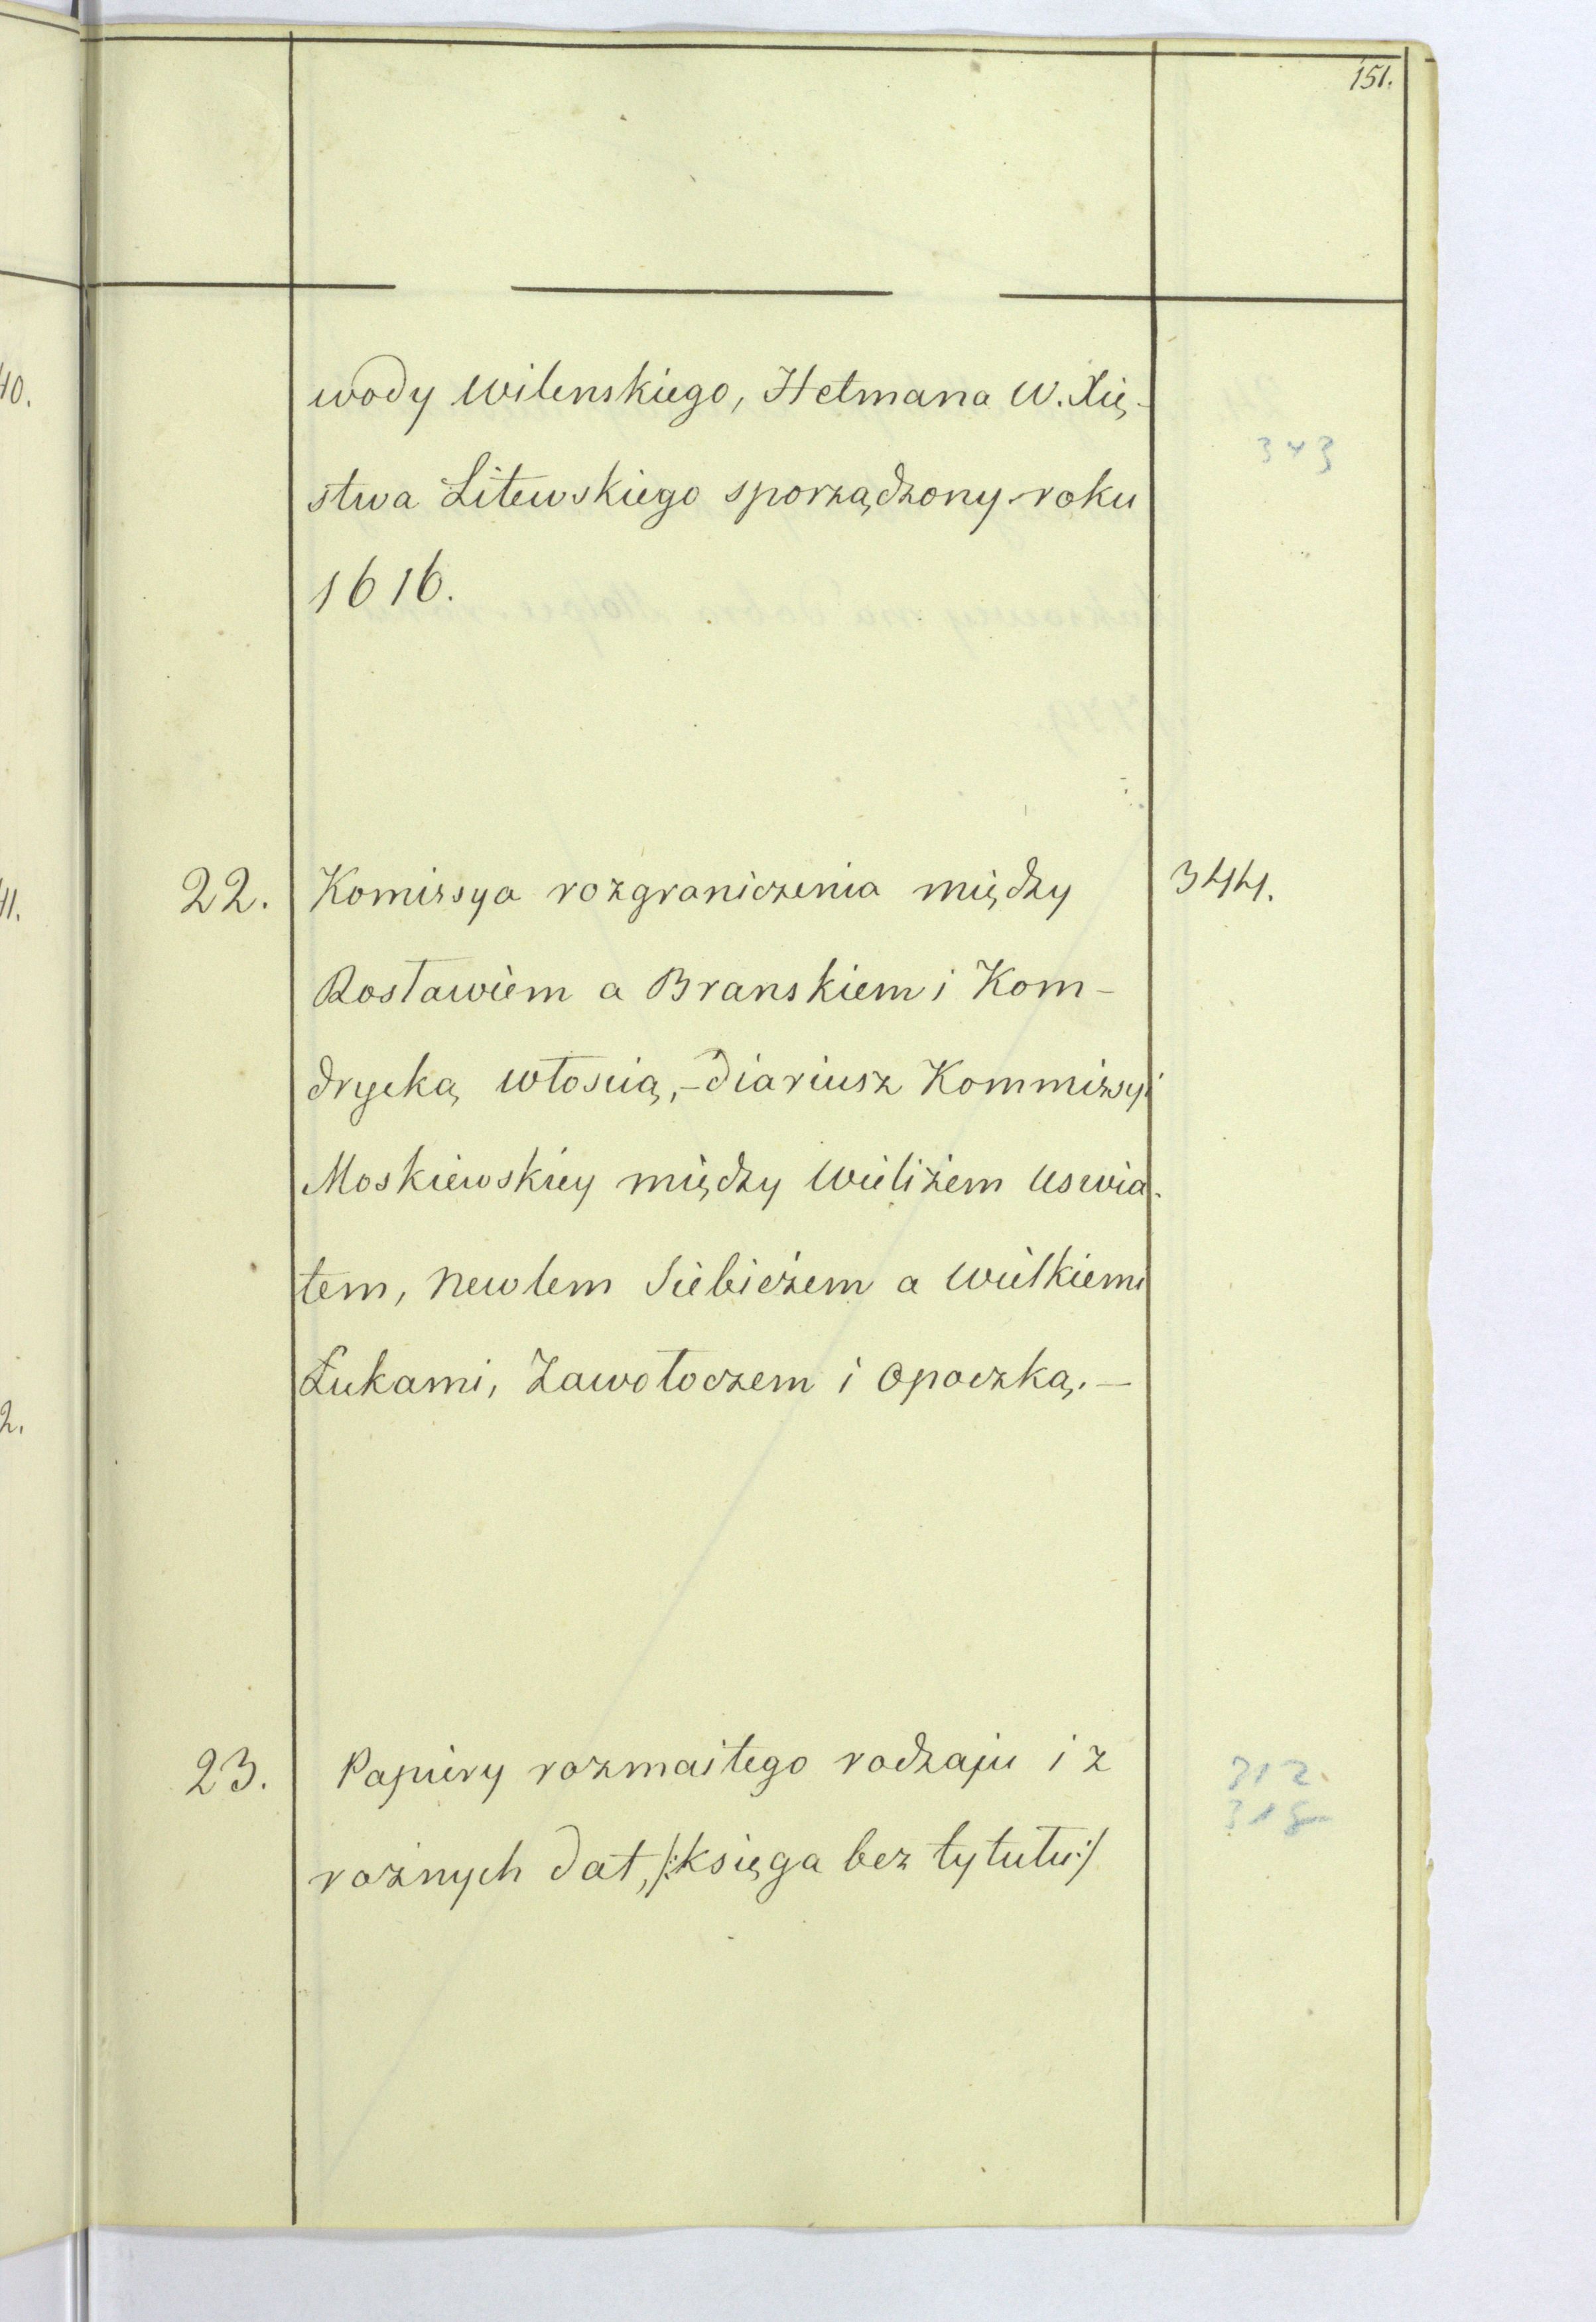 151.
wody Wilenskiego, Hetmana W. Xię-
343
stwa Litewskiego sporządzony roku
1616.
22. Komissya rozgraniczenia między 344.
Rosławiem a Branskiem i Kom-
drycką włoscią,-diariusz Kommissyi
Moskiewskiey między Wieliżem Uswia-
tem, Newlem Siebieżem a Wielkiemi
Łukami, Zawołoczem i Opoczką.—
23. Papiery rozmaitego rodzaju i z 312.
rożnych dat, /:księga bez tytułu:/